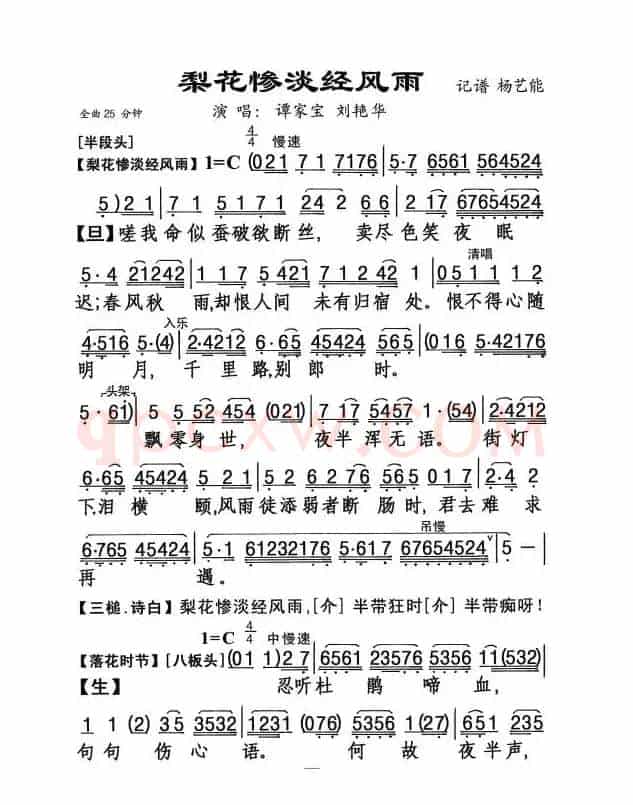 梨花惨淡经风雨 记谱 杨艺能
全曲25 分钟 演 唱： 谭家宝 刘艳华
[半段头] 4/4 慢速
【梨花惨淡经风雨】1=C (021 7 1 7176 | 5·7 6561 564524
5) 2 1 | 7 1 5 1 7 1 24 2 6 6 | 2 17 67654524
【旦】嗟我命似蚕破欲断丝， 卖尽色笑夜 眠
清唱
5·4 21242 | 1 1 7 5 421 7 1 242 1 | 0 5 1 1 1 2
迟；春风秋 雨，却恨人间 未有归宿 处。恨不得心随
入乐
4·516 5·(4) | 2·4212 6·65 45424 565 | 012 5·42176
明 月， 千 里 路，别 郎 时。
头架
5·6i) | 5 5 52 454 (021) | 7 17 5457 1·(54) | 2·4212
飘零身 世， 夜半 浑无 语。 街灯
6·65 45424 5 2 1 | 5 6276 2 765 017 | 5·1 2 4
下，泪 横 颐，风雨 徒添弱者断 肠时，君去 难 求
吊慢
6·765 45424 | 5·1 61232176 5·617 67654524 ∨ | 5 –
再 遇。
【三槌．诗白】梨花惨淡经风雨，[介] 半带狂时[介] 半带痴呀！
1=C 4/4 中慢速
【落花时节】[八板头] (01 1)2 7 | 6561 23576 5356 11(532)
【生】 忍听杜 鹃 啼 血，
1 1 (2) 35 3532 | 1231 (076) 5356 1(27) | 651 235
句 句 伤 心 语。 何 故 夜半声，